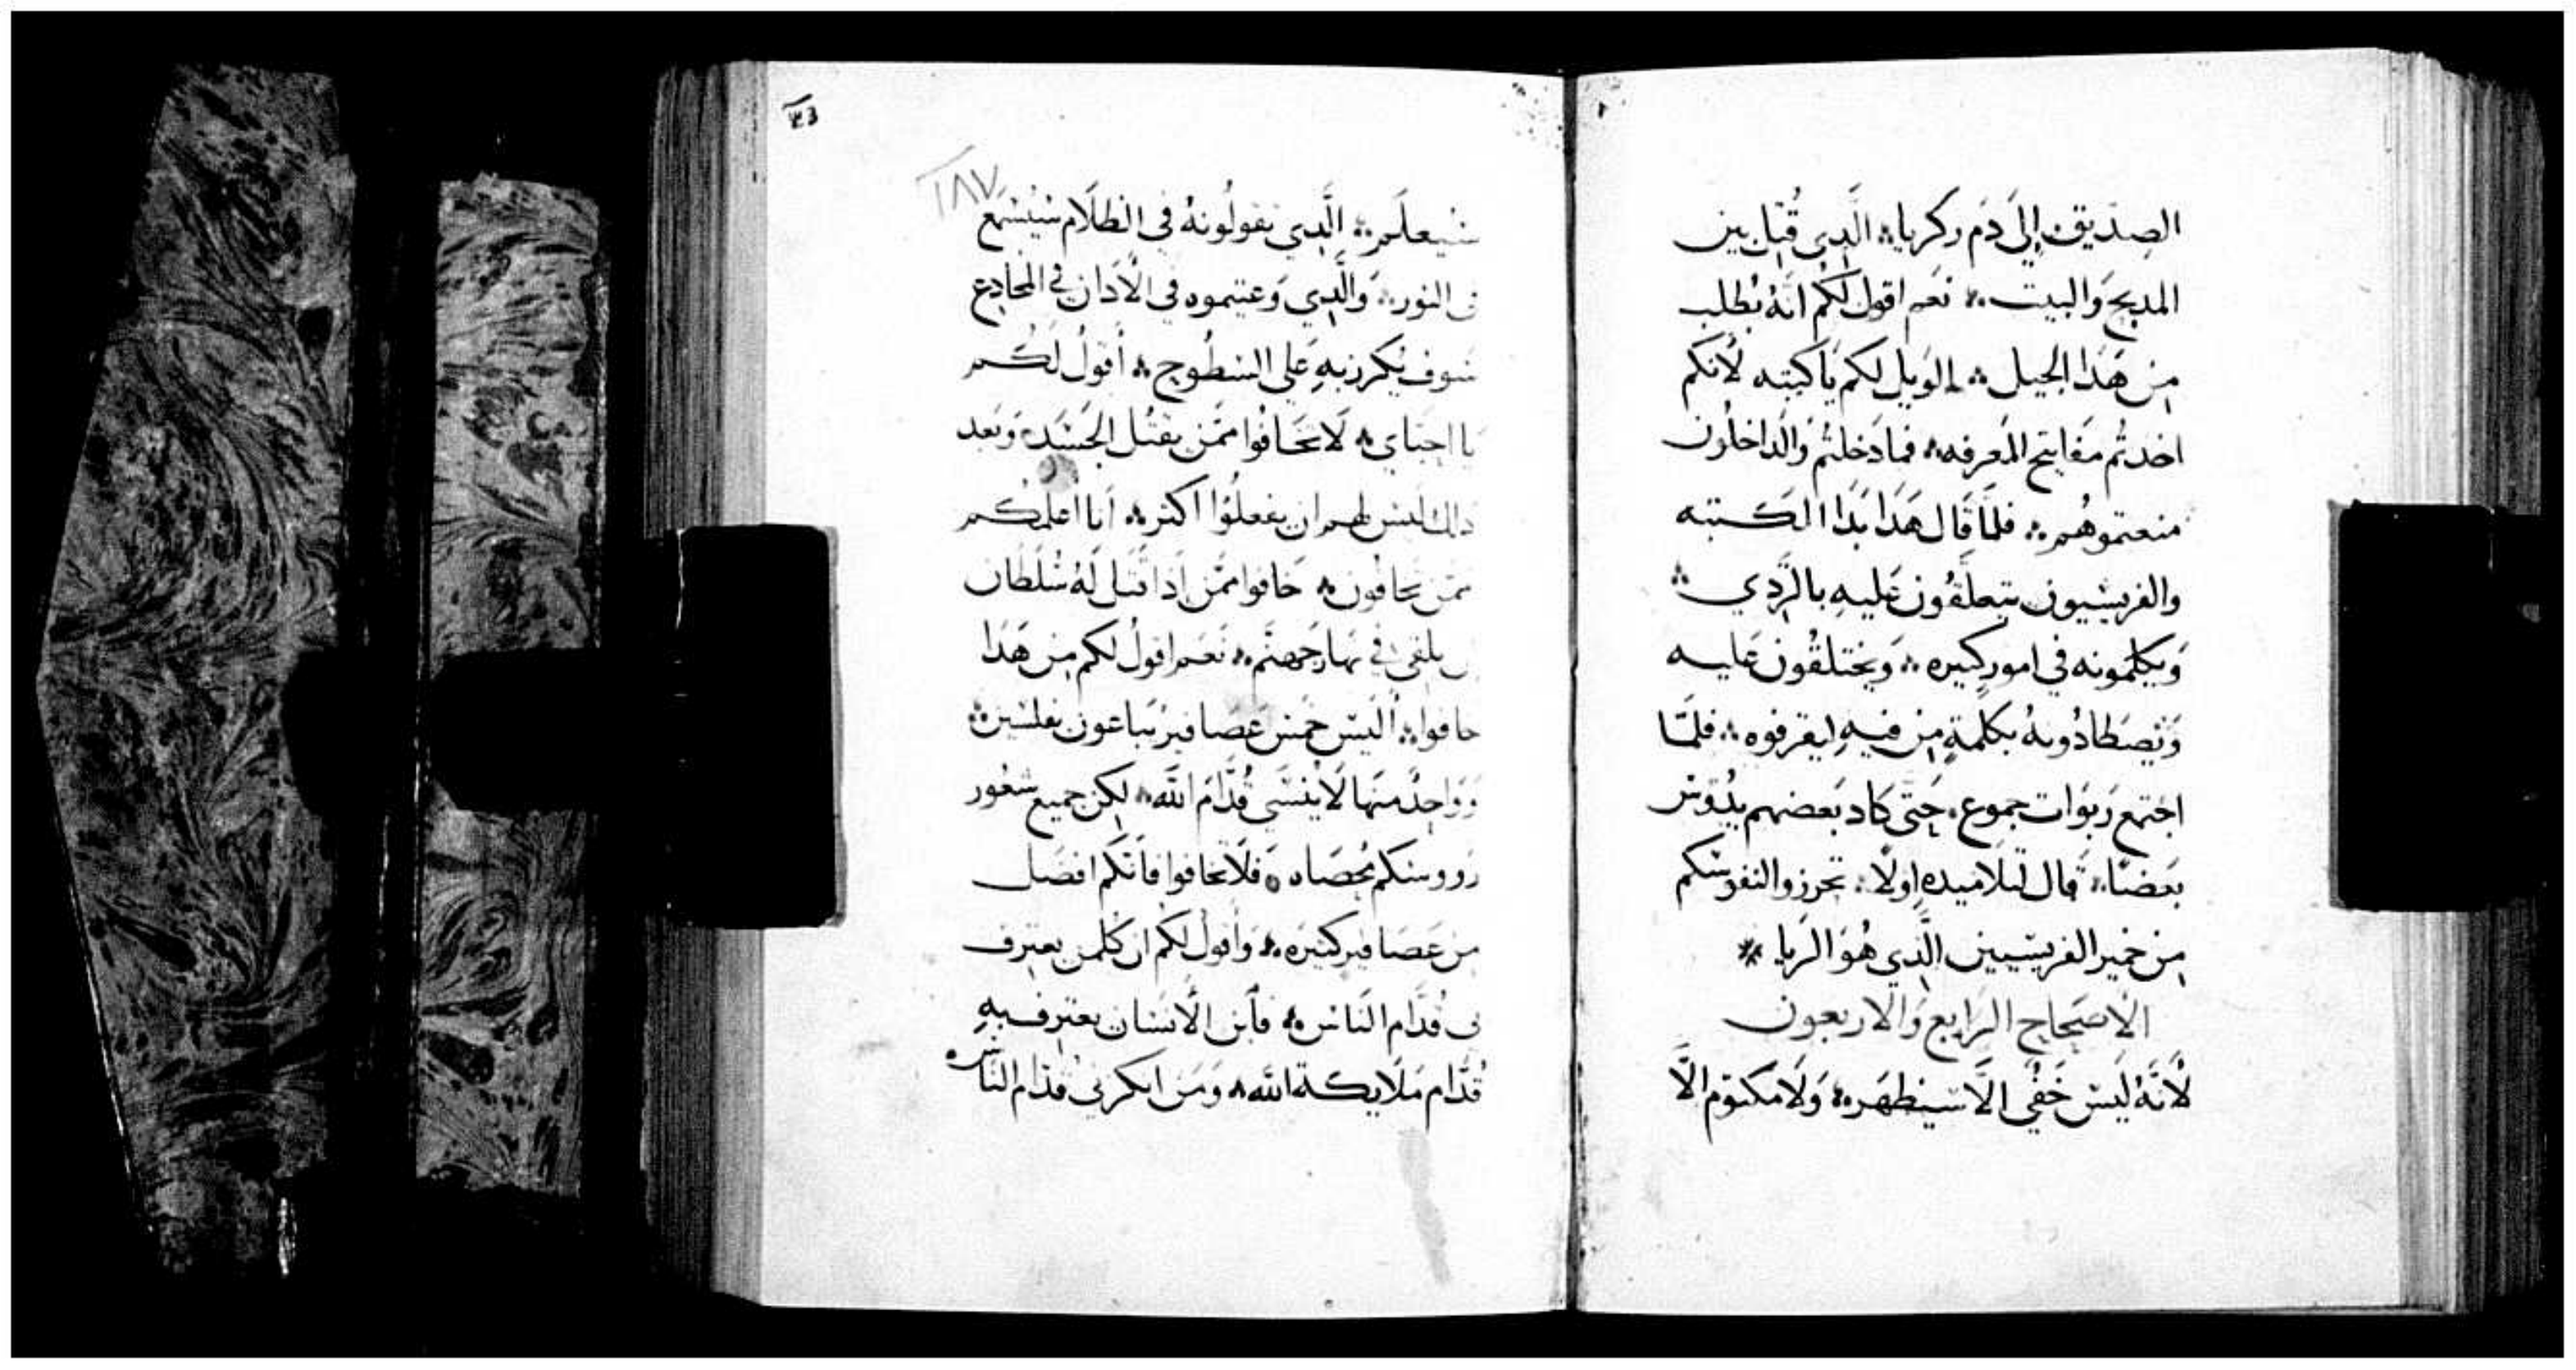 الصديق إلى دم زكريا الذي قُتل بين
المدبح والبيت نعم اقول لكم انه يُطلب
من هَدا الجيل الويل لكم يا كتبه لأنكم
اخدتُم مفاتيح المَعرفه فما دَخلتُم والداخلون
منعتموهُم فلمّا قال هَدا بَدا الكتبه
والفريسيون يتعلّقُون عَليهِ بالرّدي
وَيكلمونه في امور كثيره ويختلقُون عَليه
وَيصطادُونهُ بكلمةٍ من فيهِ ليقرفوه فلمّا
اجتمع رَبوَات جموع حتّى كاد بَعضهم يدُوس
بَعضًا قال لتلاميده اولًا تحرزوا لنفوسكم
من خمير الفريسيين الّدي هُوَ الريا
الاصحاح الرابع والاربعون
لأنّهُ ليس خَفي الّا سيظهَر وَلا مكتوم الّا
٢٨٧
سيعلَم الّدي تقولُونهُ في الظلام سيُسمع
في النور والّدي وَعيتموه في الآدان في المخادع
سَوف يُكرز بهِ على السطُوح أقولُ لكُم
يا احباي لا تخَافوا ممّن يقتُل الجسَد وَبَعد
دلك ليس لهم ان يفعلُوا اكثر انا اعلمكم
ممّن تخافون خافوا ممّن إدا قتل لَهُ سُلطان
ان يلقي في نار جهنّم نَعم اقولُ لكم من هَدا
خافوا أليس خمس عَصافير تباعون بفلسين
وَوَاحدٌ منها لا يُنسَى قُدّام اللّه لكن جميع شعُور
رووسكم مُحصاه فلا تخافوا فانّكم افضل
من عَصافير كثيره وَأقول لكم ان كلمن يعترف
بي قُدّام النّاس فأبن الأنسان يعترف بهِ
قُدّام مَلايكة اللّه وَمَن انكرني قدّام النّاس